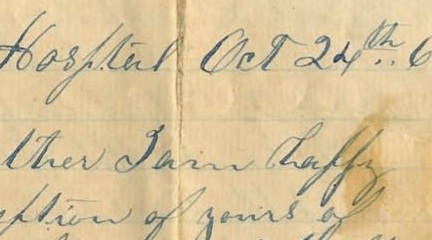 Hospital Oct 24th 6
ther I am happy
ption of yours of